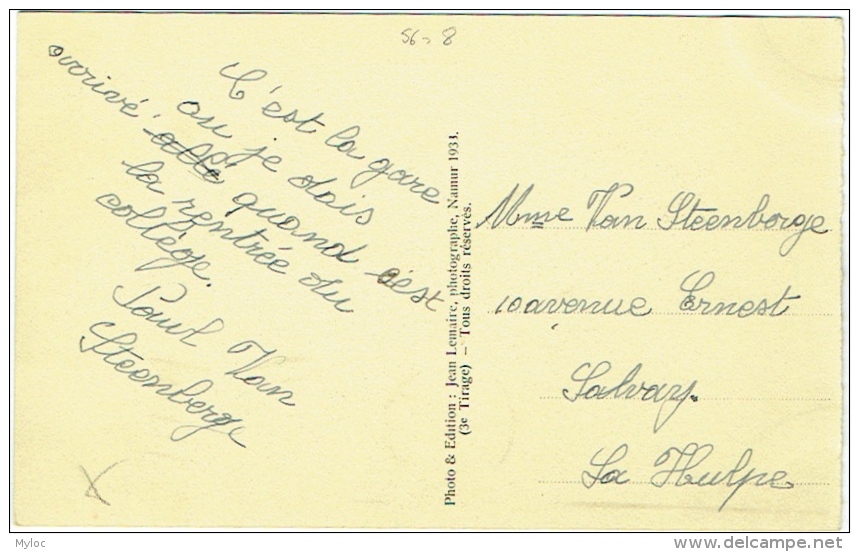 56-8
C'est la gare
ou je dois
arrivé allé quand c'est
la rentrée du
collège.
Paul Van
Steenberge
Photo & Edition : Jean Lemaire, photographe, Namur 1933.
(3e Tirage) — Tous droits réservés.
Mme Van Steenberge
10 avenue Ernest
Salvay.
La Hulpe
Myloc
delcampe.net